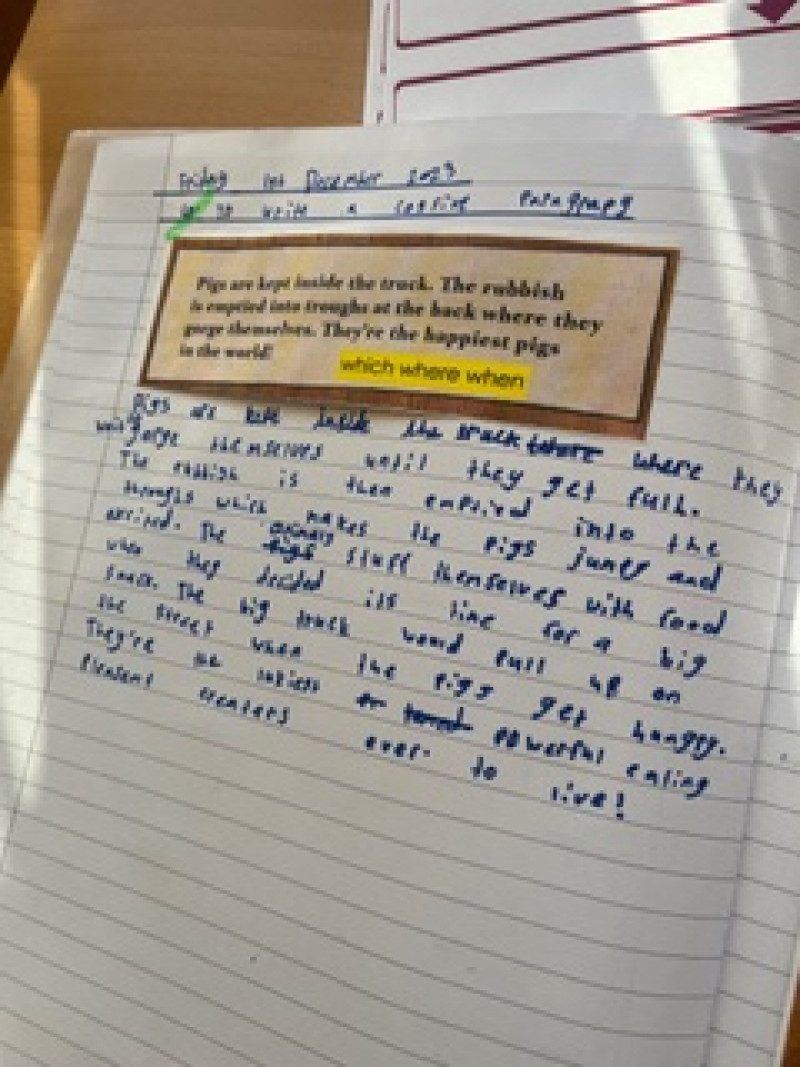 Friday 1st December 2023
to write a
Pigs are kept inside the truck. The rubbish
is emptied into troughs at the back where they
gorge themselves. They're the happiest pigs
in the world!
which where when
Pigs are kept inside the truck where they
will gorge themselves until they get full.
The rubbish is then emptied into the
throughs which makes the pigs and
The stuff themselves with food
when they decided its time for a big
snack. The big truck would pull up on
the street when the pigs get hungry.
They're the powerful eating
ever to live!